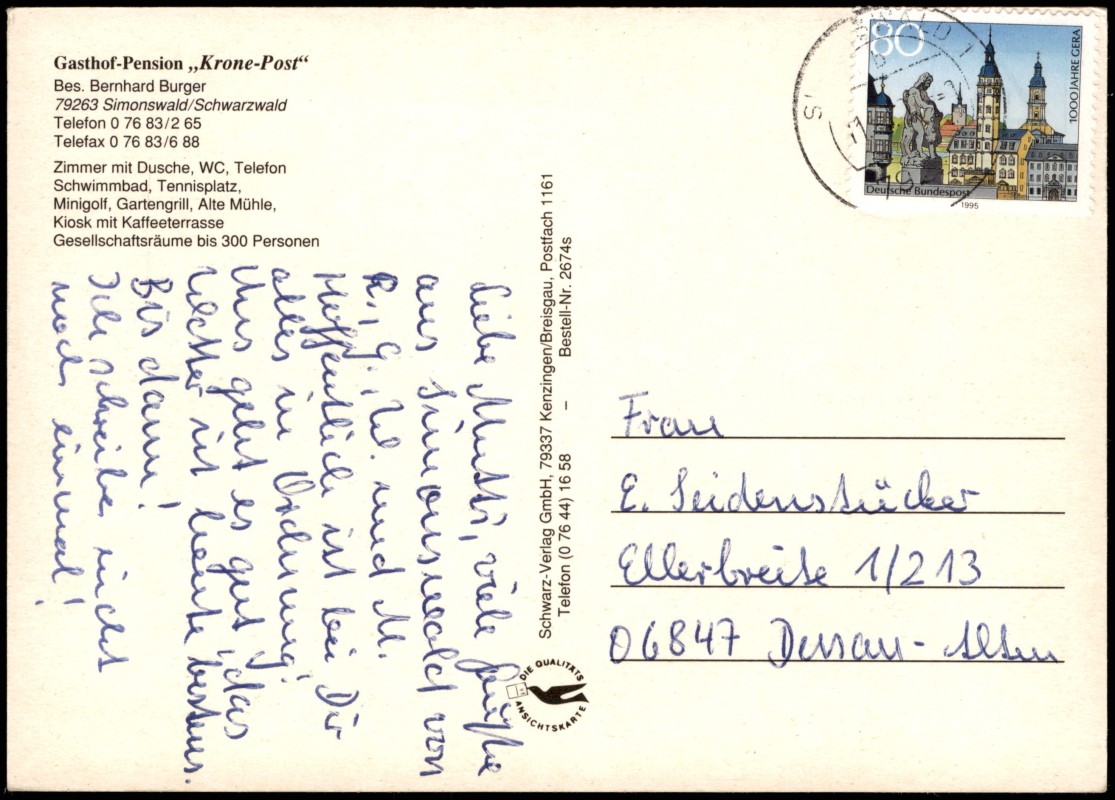 Gasthof-Pension „Krone-Post“
Bes. Bernhard Burger
79263 Simonswald/Schwarzwald
Telefon 0 76 83/2 65
Telefax 0 76 83/6 88
Zimmer mit Dusche, WC, Telefon
Schwimmbad, Tennisplatz,
Minigolf, Gartengrill, Alte Mühle,
Kiosk mit Kaffeeterrasse
Gesellschaftsräume bis 300 Personen
Liebe Mutti, viele Grüße
aus Simonswald von
R., G., W. und M.
Hoffentlich ist bei Dir
alles in Ordnung!
Uns geht es gut, das
Wetter ist heute bestens.
Bis dann!
Ich schreibe nicht
noch einmal!
Schwarz-Verlag GmbH, 79337 Kenzingen/Breisgau, Postfach 1161
Telefon (0 76 44) 16 58 – Bestell-Nr. 2674s
DIE QUALITÄTS
ANSICHTSKARTE
80
1000 JAHRE GERA
Deutsche Bundespost
1995
Frau
E. Seidenstücker
Ellerbreite 1/213
06847 Dessau-Alten